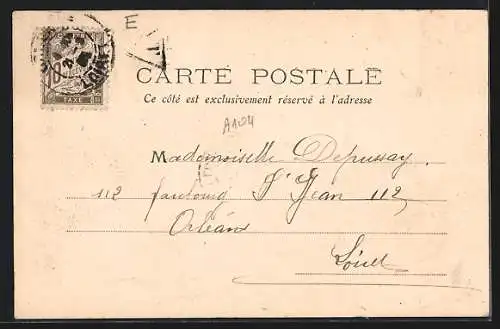 E
LOIRET
10
TAXE
CARTE POSTALE
Ce côté est exclusivement réservé à l'adresse
A104
Mademoiselle Depussay
112 faubourg St Jean 112
Orléans
Loiret